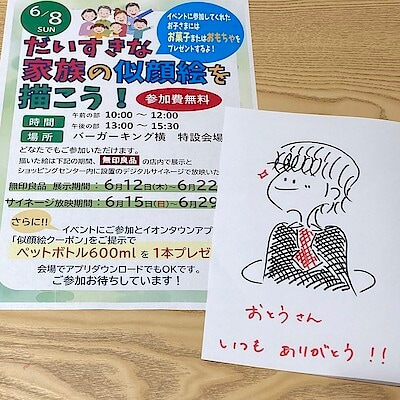 6/8
SUN
イベントに参加してくれた
お子さまには
お菓子またはおもちゃを
プレゼントするよ！
だいすきな
家族の似顔絵を
描こう！
参加費無料
時間
午前の部 10:00 ～ 12:00
午後の部 13:00 ～ 15:30
場所
バーガーキング横 特設会場
どなたでもご参加いただけます。
描いた絵は下記の期間、無印良品 の店内で展示と
ショッピングセンター内に設置のデジタルサイネージで放映いた
無印良品 展示期間：6月12日(木)～6月22
サイネージ放映期間：6月15日(日)～6月29
さらに!!
イベントにご参加とイオンタウンアプ
「似顔絵クーポン」をご提示で
ペットボトル600ml を 1本プレゼ
会場でアプリダウンロードでもOKです。
ご参加お待ちしています！
おとうさん
いつも ありがとう !!